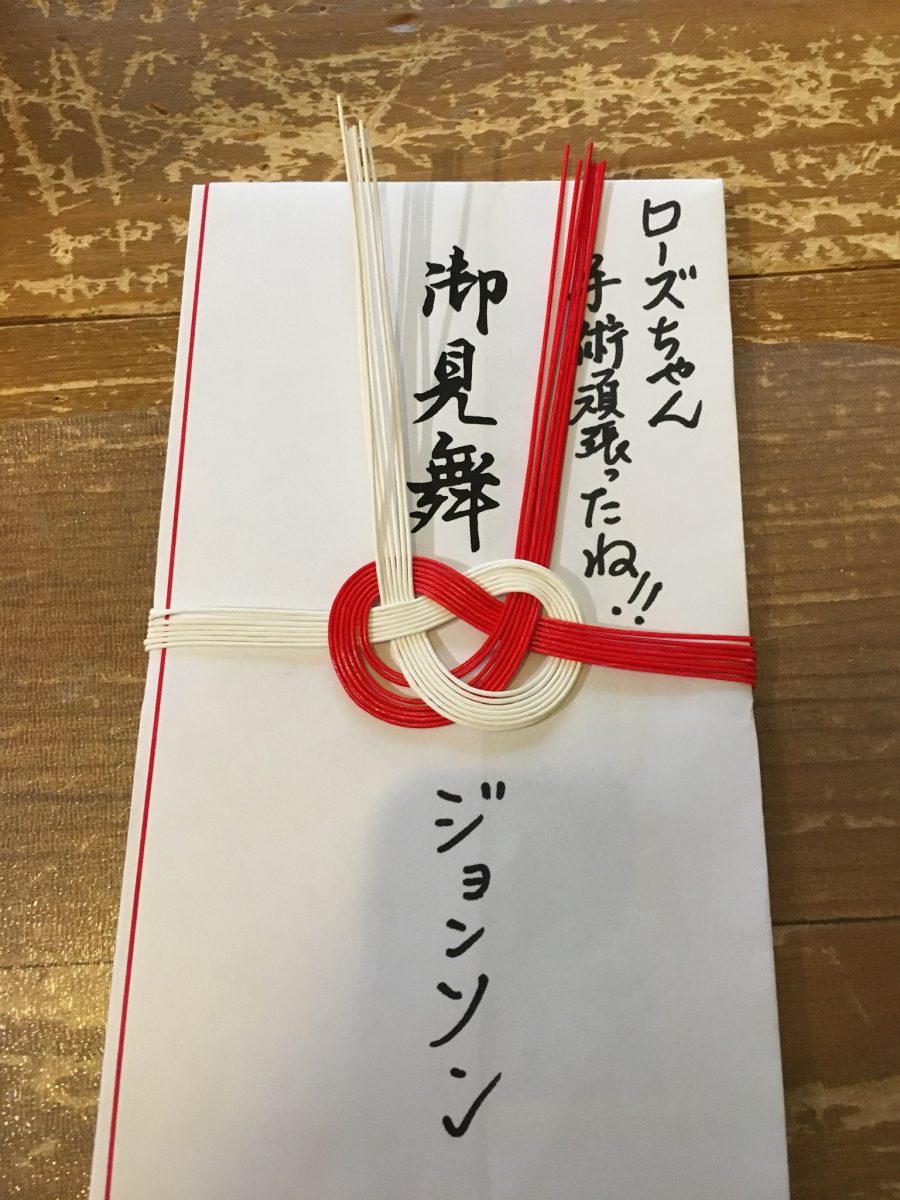 ローズちゃん
手術頑張ったね!!
御見舞
ジョンソン